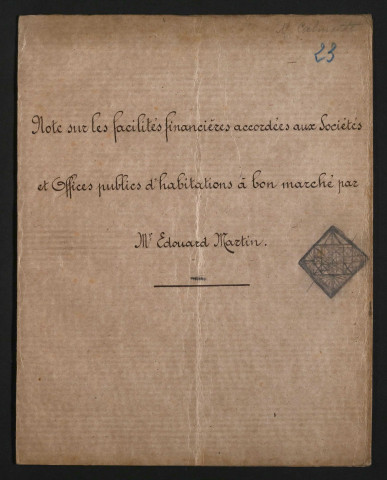 23
Note sur les facilités financières accordées aux Sociétés
et Offices publics d'habitations à bon marché par
Mr Edouard Martin.